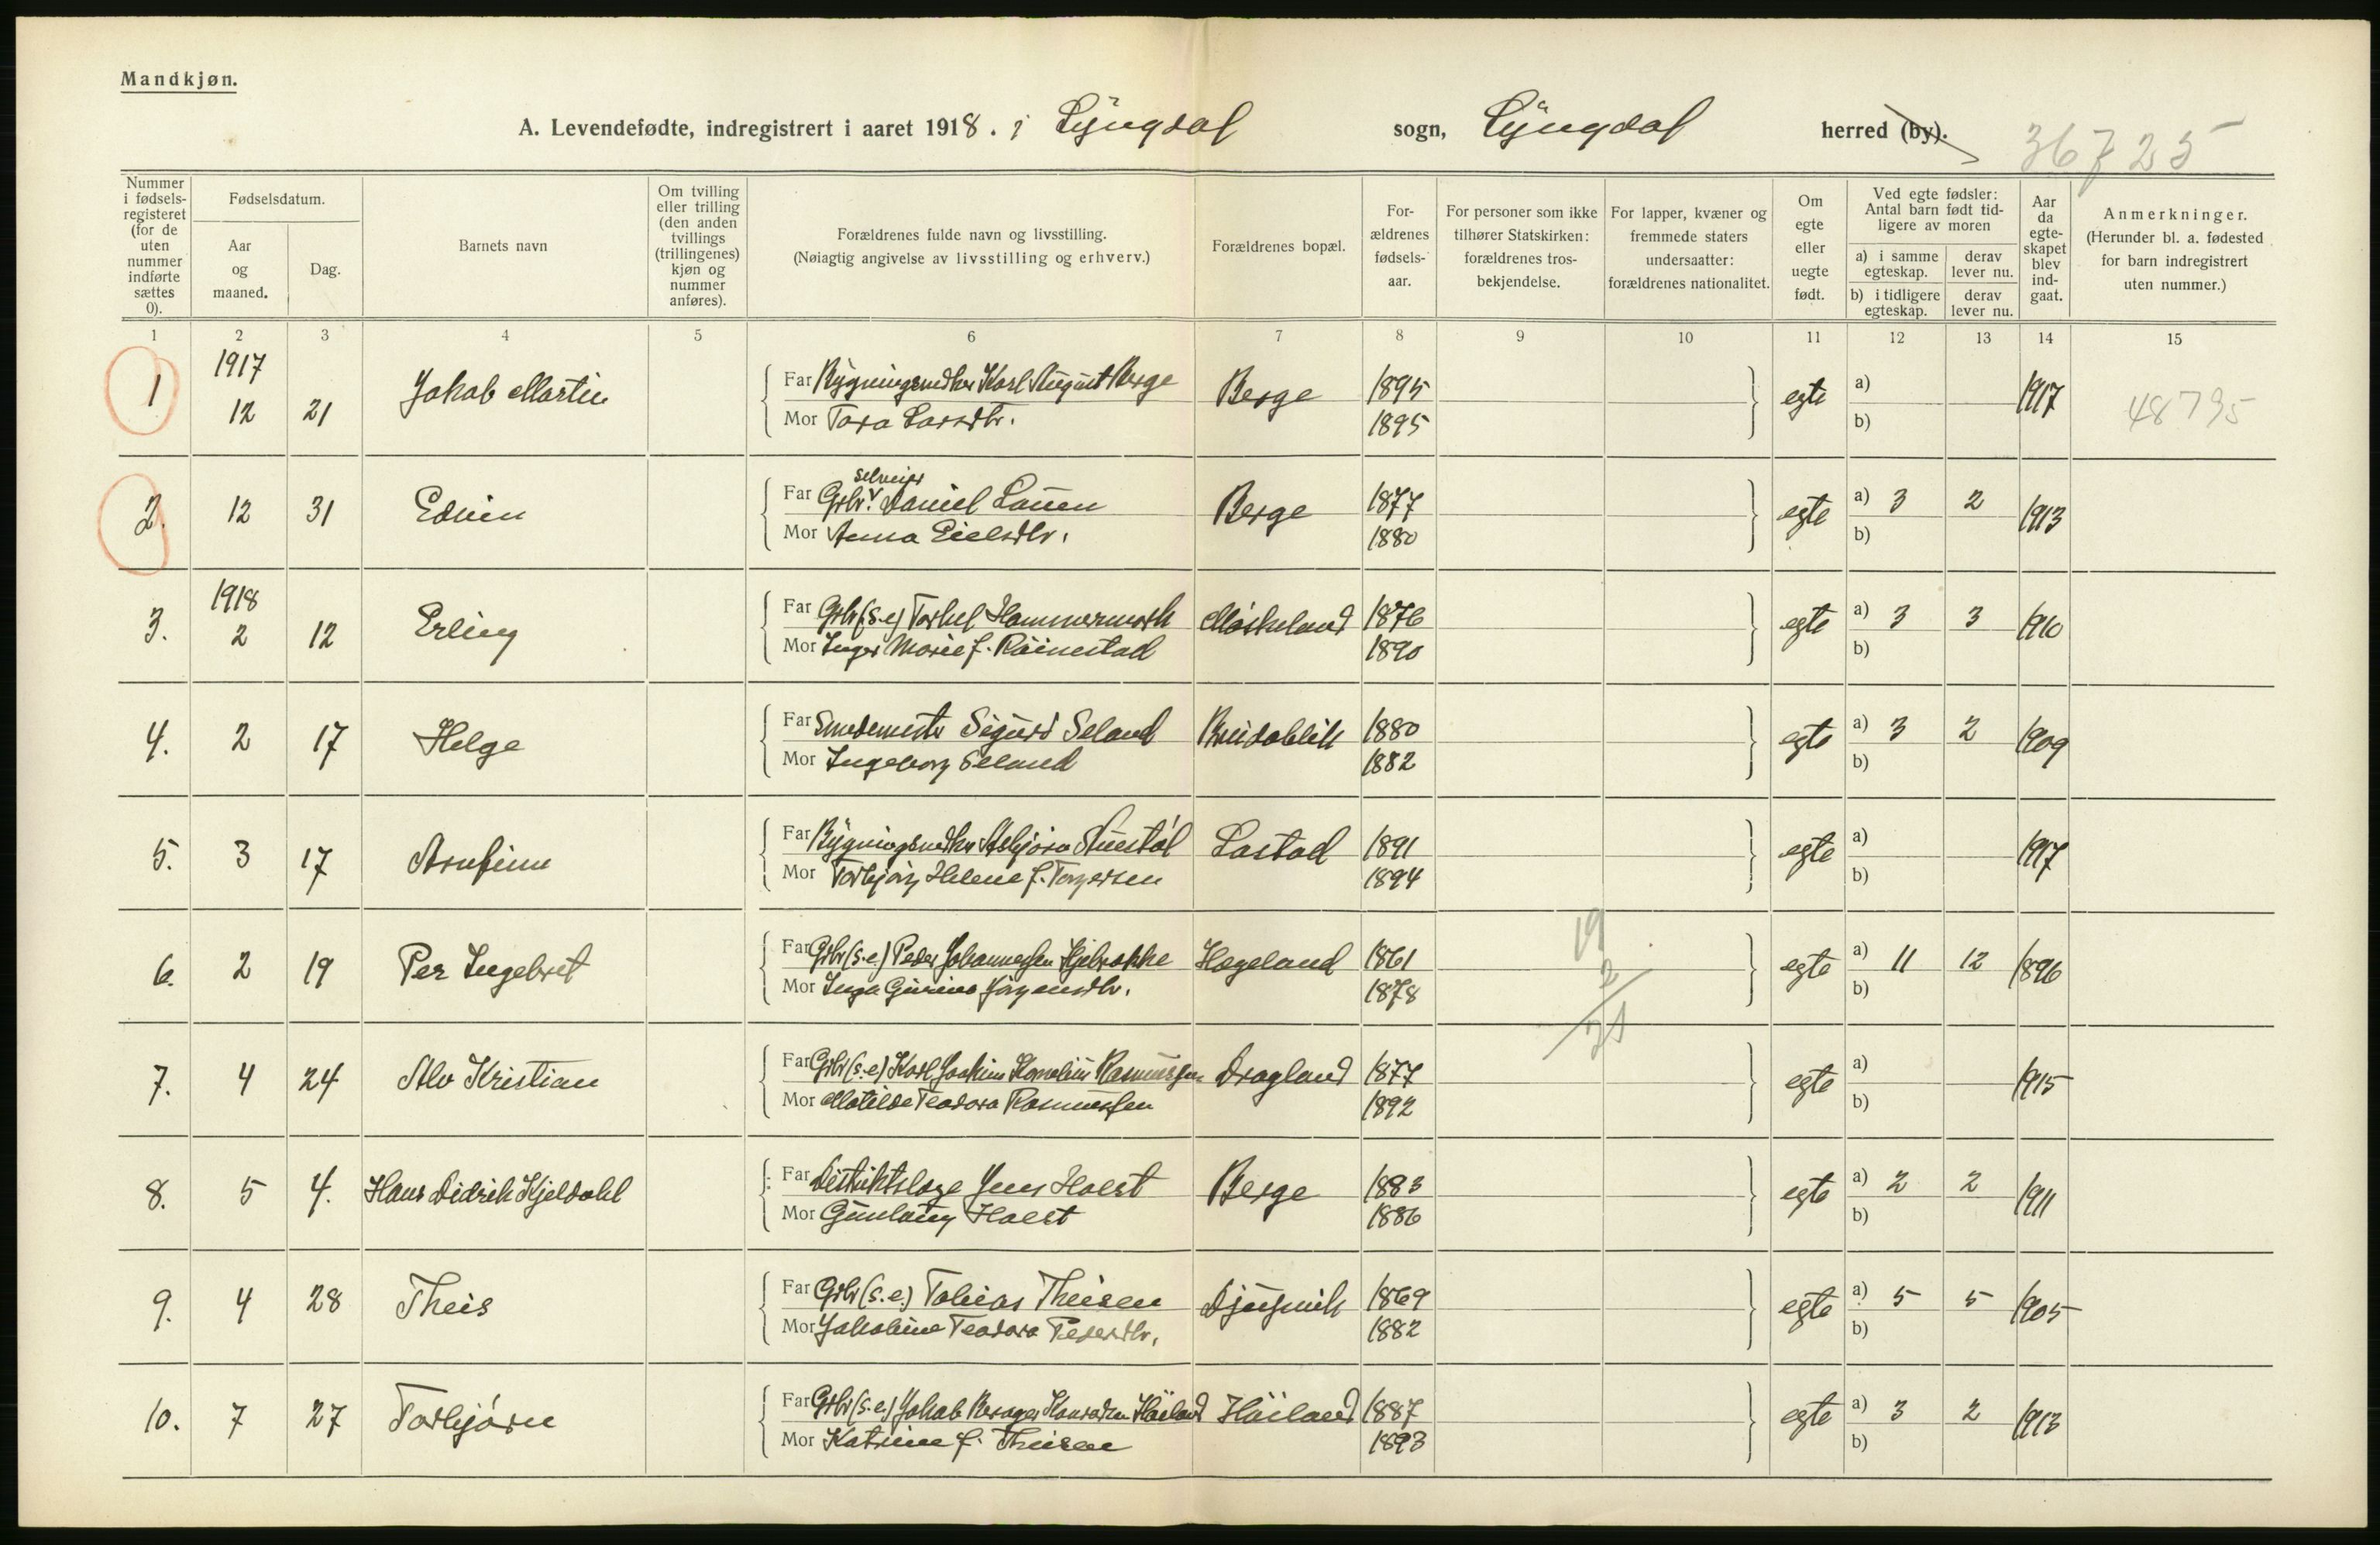 Mandkjøn.
A. Levendefødte, indregistrert i aaret 1918. i Lyngdal sogn, Lyngdal herred (by).
36725
Nummer i fødsels-registeret (for de uten nummer indførte sættes 0).
Fødselsdatum.
Aar og maaned.
Dag.
Barnets navn
Om tvilling eller trilling (den anden tvillings (trillingenes) kjøn og nummer anføres).
Forældrenes fulde navn og livsstilling.
(Nøiagtig angivelse av livsstilling og erhverv.)
Forældrenes bopæl.
For-ældrenes fødsels-aar.
For personer som ikke tilhører Statskirken: forældrenes tros-bekjendelse.
For lapper, kvæner og fremmede staters undersaatter: forældrenes nationalitet.
Om egte eller uegte født.
Ved egte fødsler: Antal barn født tid-ligere av moren
a) i samme egteskap.
derav lever nu.
b) i tidligere egteskap.
derav lever nu.
Aar da egte-skapet blev ind-gaat.
Anmerkninger.
(Herunder bl. a. fødested for barn indregistrert uten nummer.)
1 2 3 4 5 6 7 8 9 10 11 12 13 14 15
1 1917 12 21 Jakob Martin Far Karl August Berge Berge 1895 egte a) 1917 48795
Mor Tora Larsdtr. 1895 b)
2. 12 31 Edvin Far Grbr. selveier Daniel Lauen Berge 1877 egte a) 3 2 1913
Mor Anna Eielsdtr. 1880 b)
3. 1918 2 12 Erling Far Grbr (s.e) Torkel Hammersmark Møskeland 1876 egte a) 3 3 1910
Mor Inger Marie f. Røinestad 1890 b)
4. 2 17 Helge Far Smedemester Sigurd Seland Breidablik 1880 egte a) 3 2 1909
Mor Ingeborg Seland 1882 b)
5. 3 17 Arnfinn Far Asbjørn Lastad 1891 egte a) 1917
Mor Torbjørg Helene f. Torgersen 1894 b)
6. 2 19 Per Ingebret Far Grbr (s.e.) Peder Johannessen Hægeland 1861 egte a) 11 12 1896
Mor Inga Gurine Jørgensdtr. 1878 b)
19
2
21
7. 4 24 Alv Kristian Far Grbr (s.e) Karl Joakim Kornelius Rasmussen Dragland 1877 egte a) 1915
Mor Matilde Teodora Rasmussen 1892 b)
8. 5 4. Hans Didrik Kjeldahl Far Distriktslæge Jens Holst Berge 1883 egte a) 2 2 1911
Mor Gunlaug Holst 1886 b)
9. 4 28 Theis Far Grbr (s.e.) Tobias Theisen Djupvik 1869 egte a) 5 5 1905
Mor Jakobine Teodora Pedersdtr. 1882 b)
10. 7 27 Torbjørn Far Grbr (s.e.) Jakob Konradsen Høiland Høiland 1887 egte a) 3 2 1913
Mor Katrine f. Theisen 1893 b)